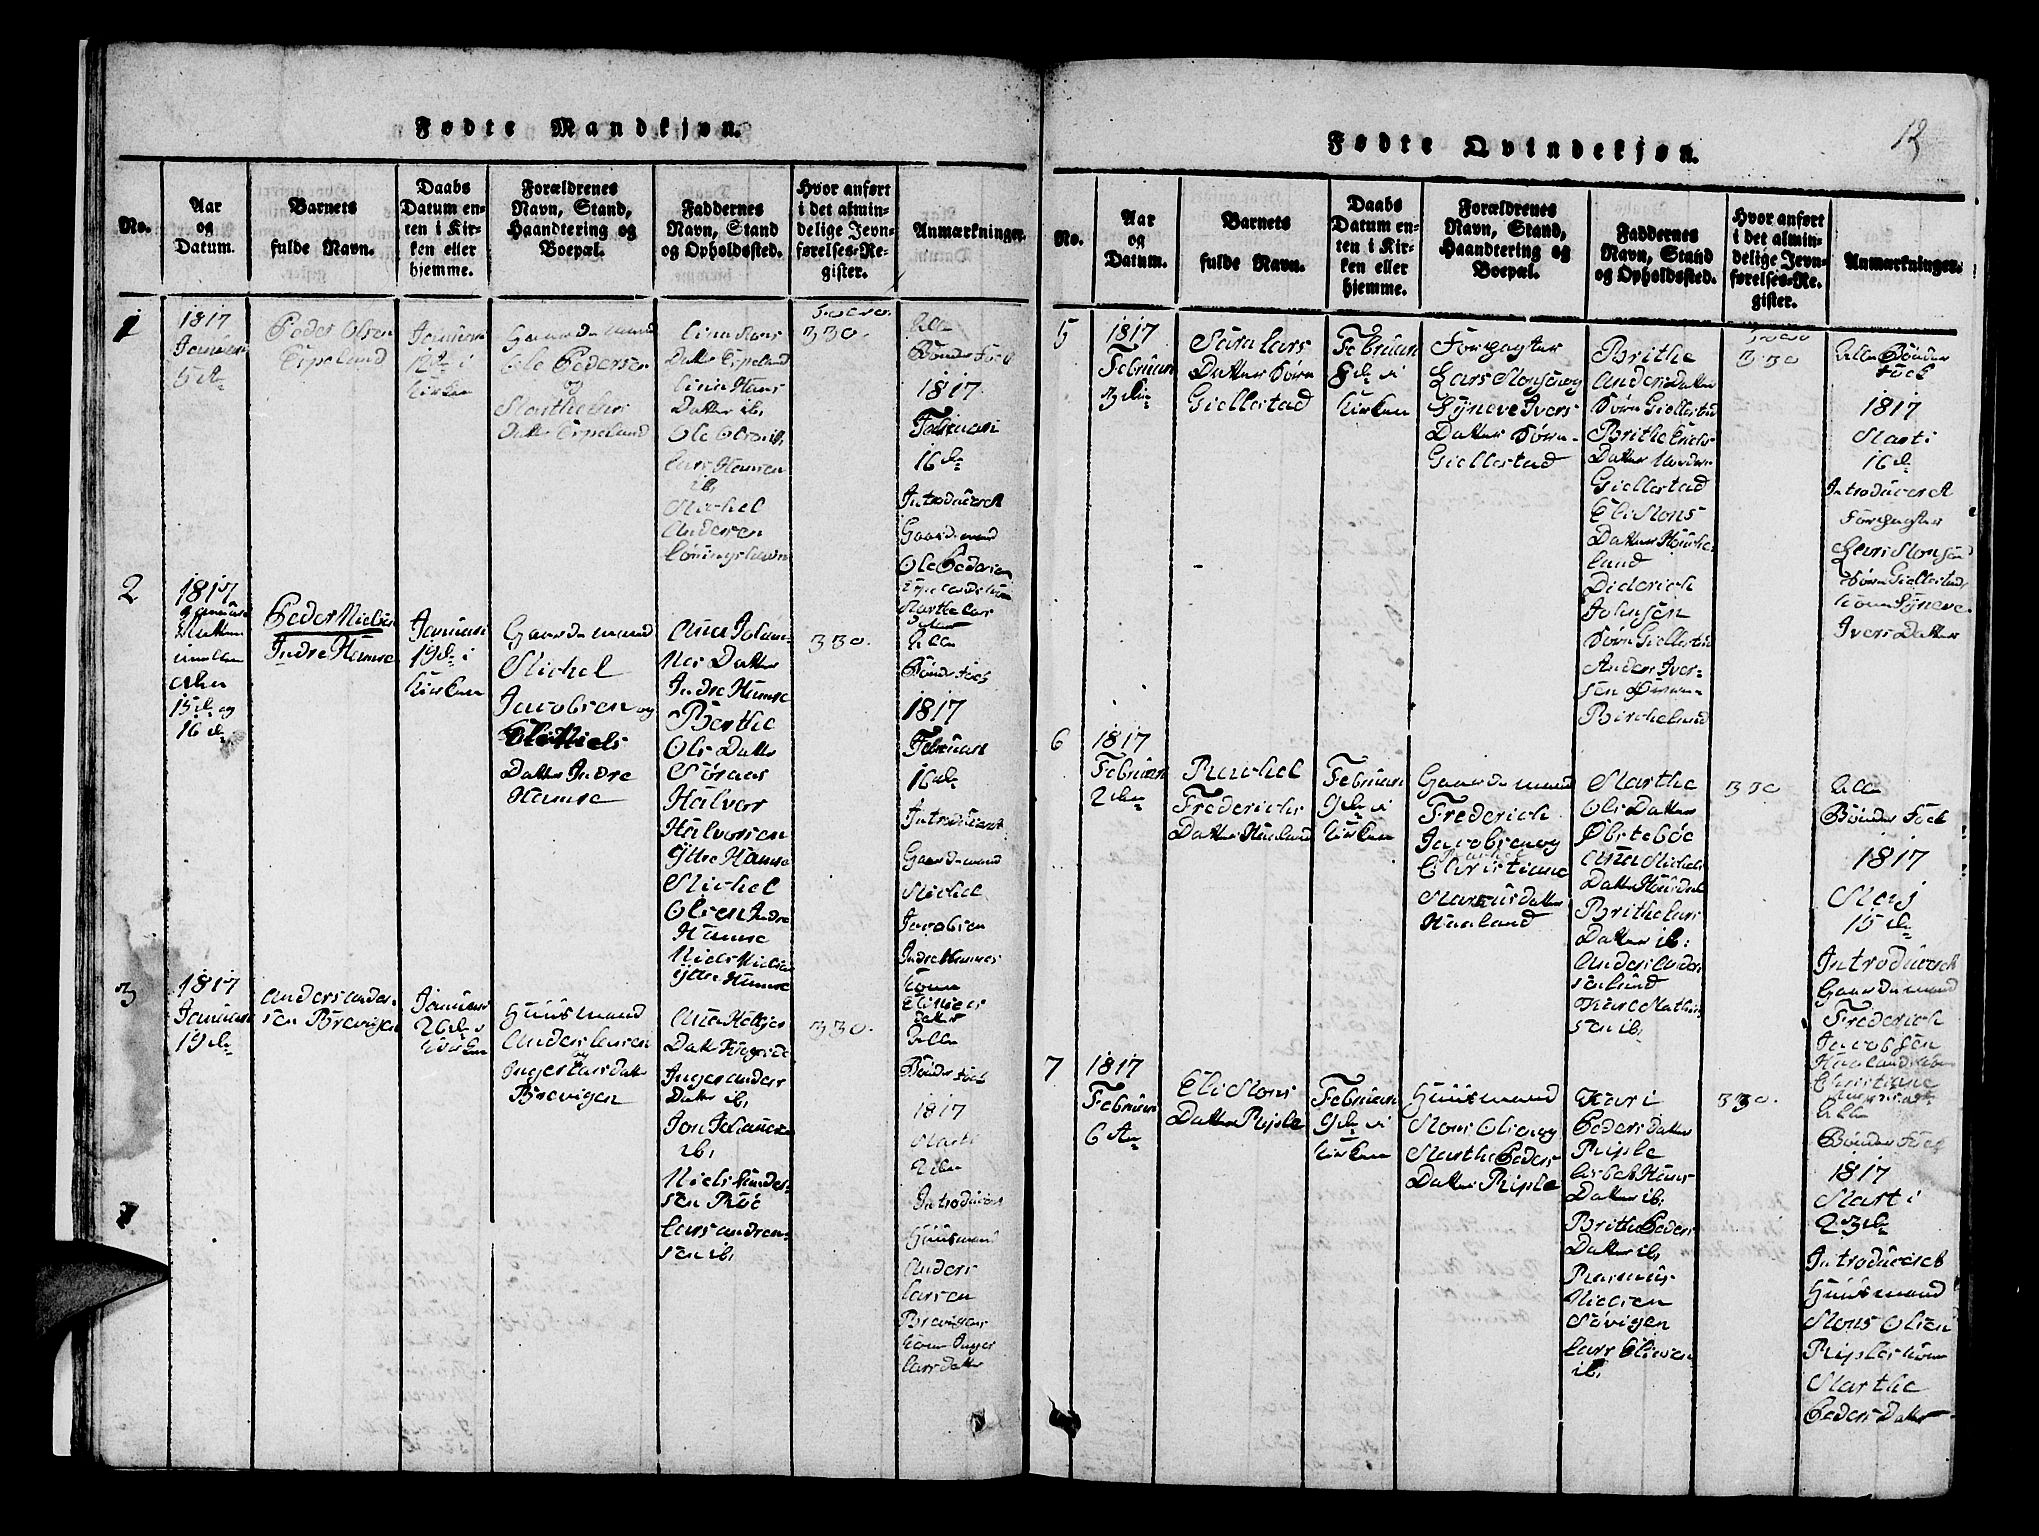 Fødte Mandkjøn.
No.
Aar
og
Datum.
Barnets
fulde Navn.
Daabs
Datum en-
ten i Kir-
ken eller
hjemme.
Forældrenes
Navn, Stand,
Haandtering og
Boepæl.
Faddernes
Navn, Stand
og Opholdssted.
Hvor anført
i det almin-
delige Jevn-
førelses-Re-
gister.
Anmærkninger.
1
1817
Januari
5te
Peder Olsen
Espeland
Januari
12te i
Kirken
Gaardemand
Ole Pedersen
og
Marthe Lars
Datter Espeland
Lars Hansen
ib.
Michel
Andersen
330.
Alle
Bønder Folk
1817
Februari
16de
Introduceret
Gaardemand
Ole Pedersen
Marthe Lars
Datter
2
1817
Peder Nielsen
Indre Hamre
Januari
19de i
Kirken
Gaardemand
Michel
Jacobsen og
Eli Niels
Datter Indre
Hamre
Ana Johan-
nes Datter
Indre Hamre
Berthe
Ols Datter
Halvor
Halvorsen
Ytre Hamre
Michel
Olsen Indre
Hamre
Niels Nielsen
Ytre Hamre
330.
Alle
Bønder Folk
1817
Februari
16de
Introduceret
Gaardemand
Michel
Jacobsen
Indre Hamres
Kone
Eli Niels
Datter
3
1817
Januari
19de
Anders Ander-
sen Brevigen
Januari
26de i
Kirken
Huusmand
Anders Larsen
og
Inger Lars Datter
Brevigen
Inger Anders
Datter ib.
Jon Johannesen
ib.
Niels Ander-
sen Røe
Lars Andrea-
sen ib.
330.
Alle
Bønder Folk
1817
Marti
2den
Introduceret
Huusmand
Anders
Larsen
Brevigens
Kone Inger
Lars Datter
Fødte Qvindekjøn.
12
No.
Aar
og
Datum.
Barnets
fulde Navn.
Daabs
Datum en-
ten i Kir-
ken eller
hjemme.
Forældrenes
Navn, Stand,
Haandtering og
Boepæl.
Faddernes
Navn, Stand
og Opholdssted.
Hvor anført
i det almin-
delige Jevn-
førelses-Re-
gister.
Anmærkninger.
5
1817
Februari
3die
Sara Lars
Datter Søre
Giellestad
Februari
8de i
Kirken
Forpagter
Lars Monsen og
Synneve Ivers
Datter Søre
Giellestad
Brithe
Anders Datter
Søre Giellestad
Brithe Erichs
Datter Nordre
Giellestad
Eli Mons
Datter Houke-
land
Diderich
Johnsen
Søre Giellestad
Anders Iver-
sen
Birkeland
330
Alle Bønder
Folk
1817
Marti
16de
Introduceret
Forpagter
Lars Monsen
Søre Giellestad,
Kone Synneve
Ivers Datter
6
1817
Februari
2den
Rachel
Frederichs
Datter Haaland
Februari
9de i
Kirken
Gaardemand
Frederich
Jacobsen og
Christiane
Markusdatter
Haaland
Marthe
Ols Datter
Østebøe
Ana Michels
Brithe Lars
Datter ib.
Anders Ander-
330
Alle
Bønder Folk
1817
Maj
15de
Introduceret
Gaardemand
Frederich
Jacobsen
Haalands Kone
Christiane
7
1817
Februari
6te
Eli Mons
Datter Riple
Februari
9de i
Kirken
Huusmand
Mons Olsen og
Marthe Peders
Datter Riple
Kari
Peders Datter
Riple
Lisbet Hans
Datter ib.
Brithe Peders
Datter ib.
Rasmus
Nielsen
Søvigen
ib.
330.
Alle
Bønder Folk
1817
Marti
23de
Introduceret
Huusmand
Mons Olsen
Riples Kone
Marthe
Peders Datter